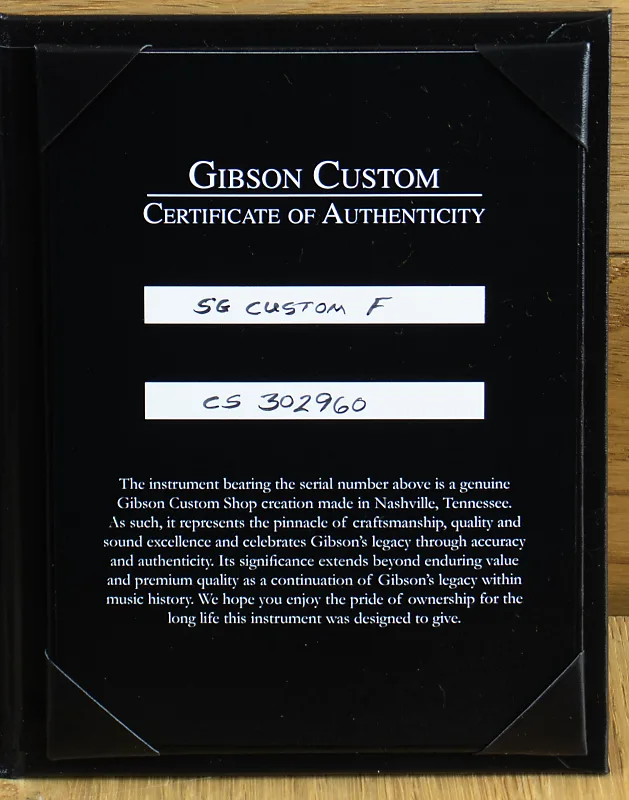 GIBSON CUSTOM
CERTIFICATE OF AUTHENTICITY
SG CUSTOM F
CS 302960
The instrument bearing the serial number above is a genuine
Gibson Custom Shop creation made in Nashville, Tennessee.
As such, it represents the pinnacle of craftsmanship, quality and
sound excellence and celebrates Gibson's legacy through accuracy
and authenticity. Its significance extends beyond enduring value
and premium quality as a continuation of Gibson's legacy within
music history. We hope you enjoy the pride of ownership for the
long life this instrument was designed to give.